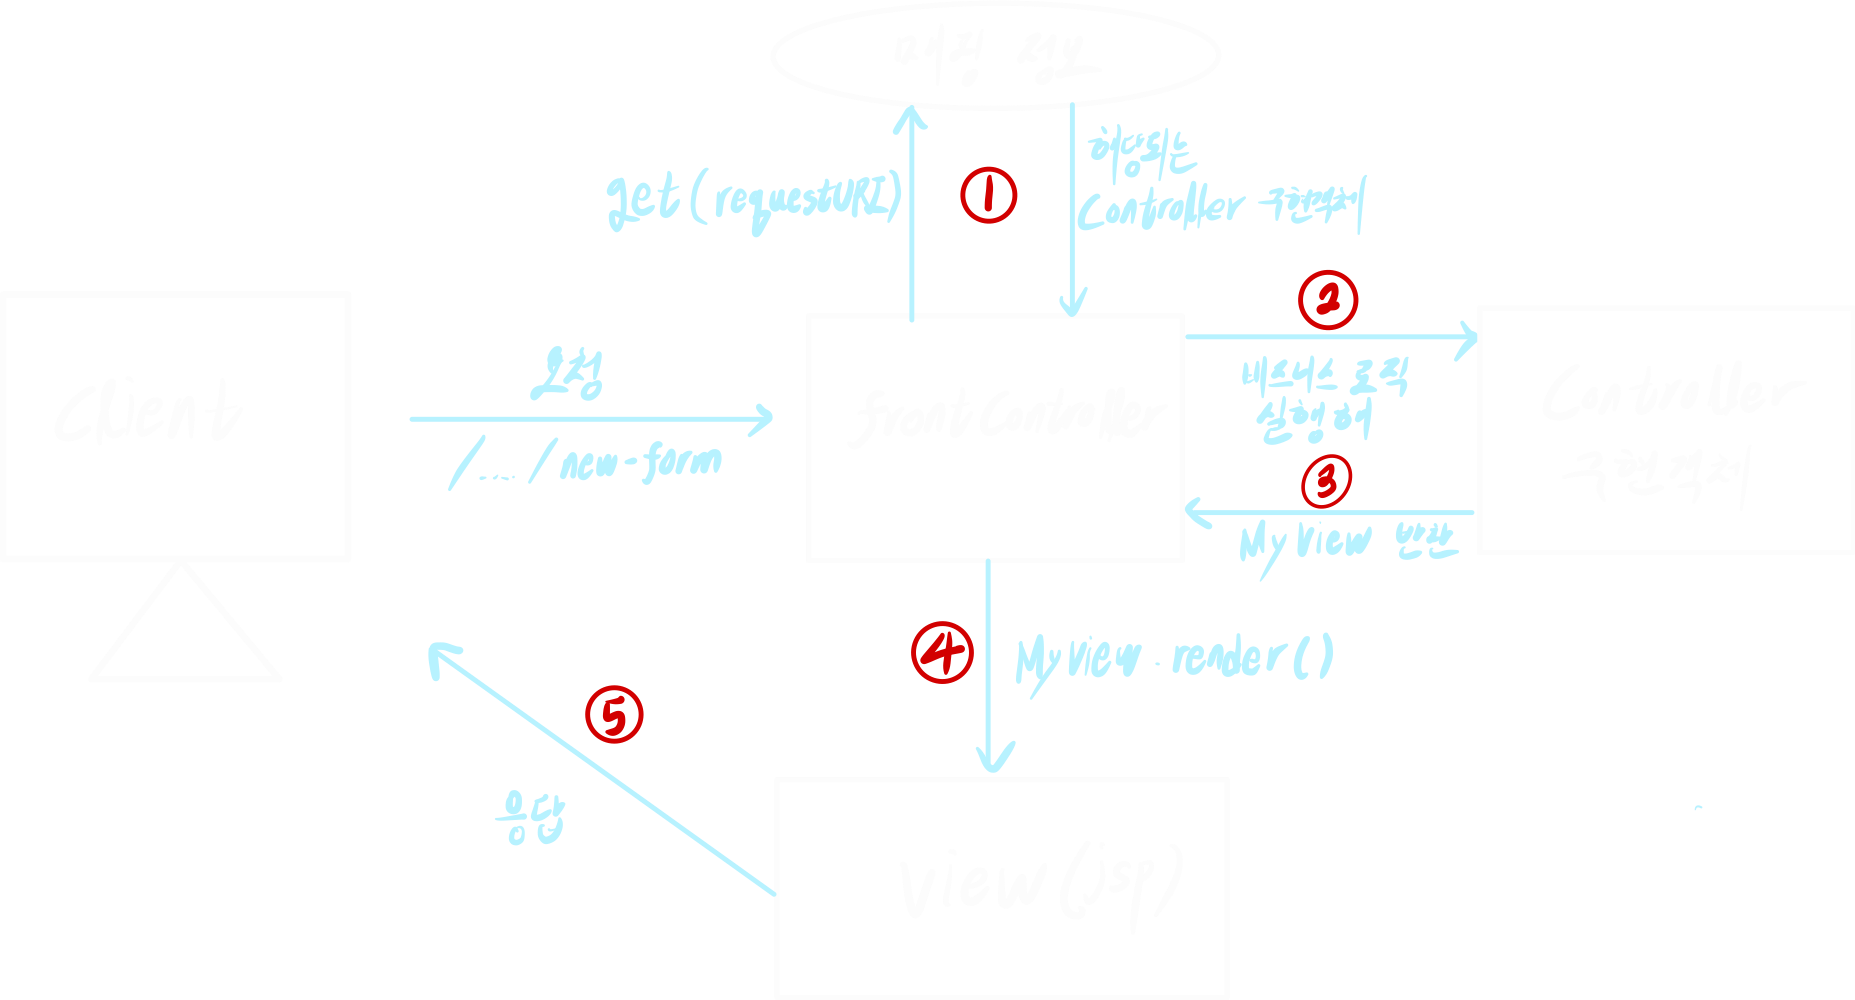 매핑 정보
get(requestURI)
①
해당되는
Controller 구현객체
②
Client
요청
/..... /new-form
frontController
비즈니스 로직
실행해
Controller
구현객체
③
MyView 반환
④
MyView.render()
⑤
응답
View(jsp)